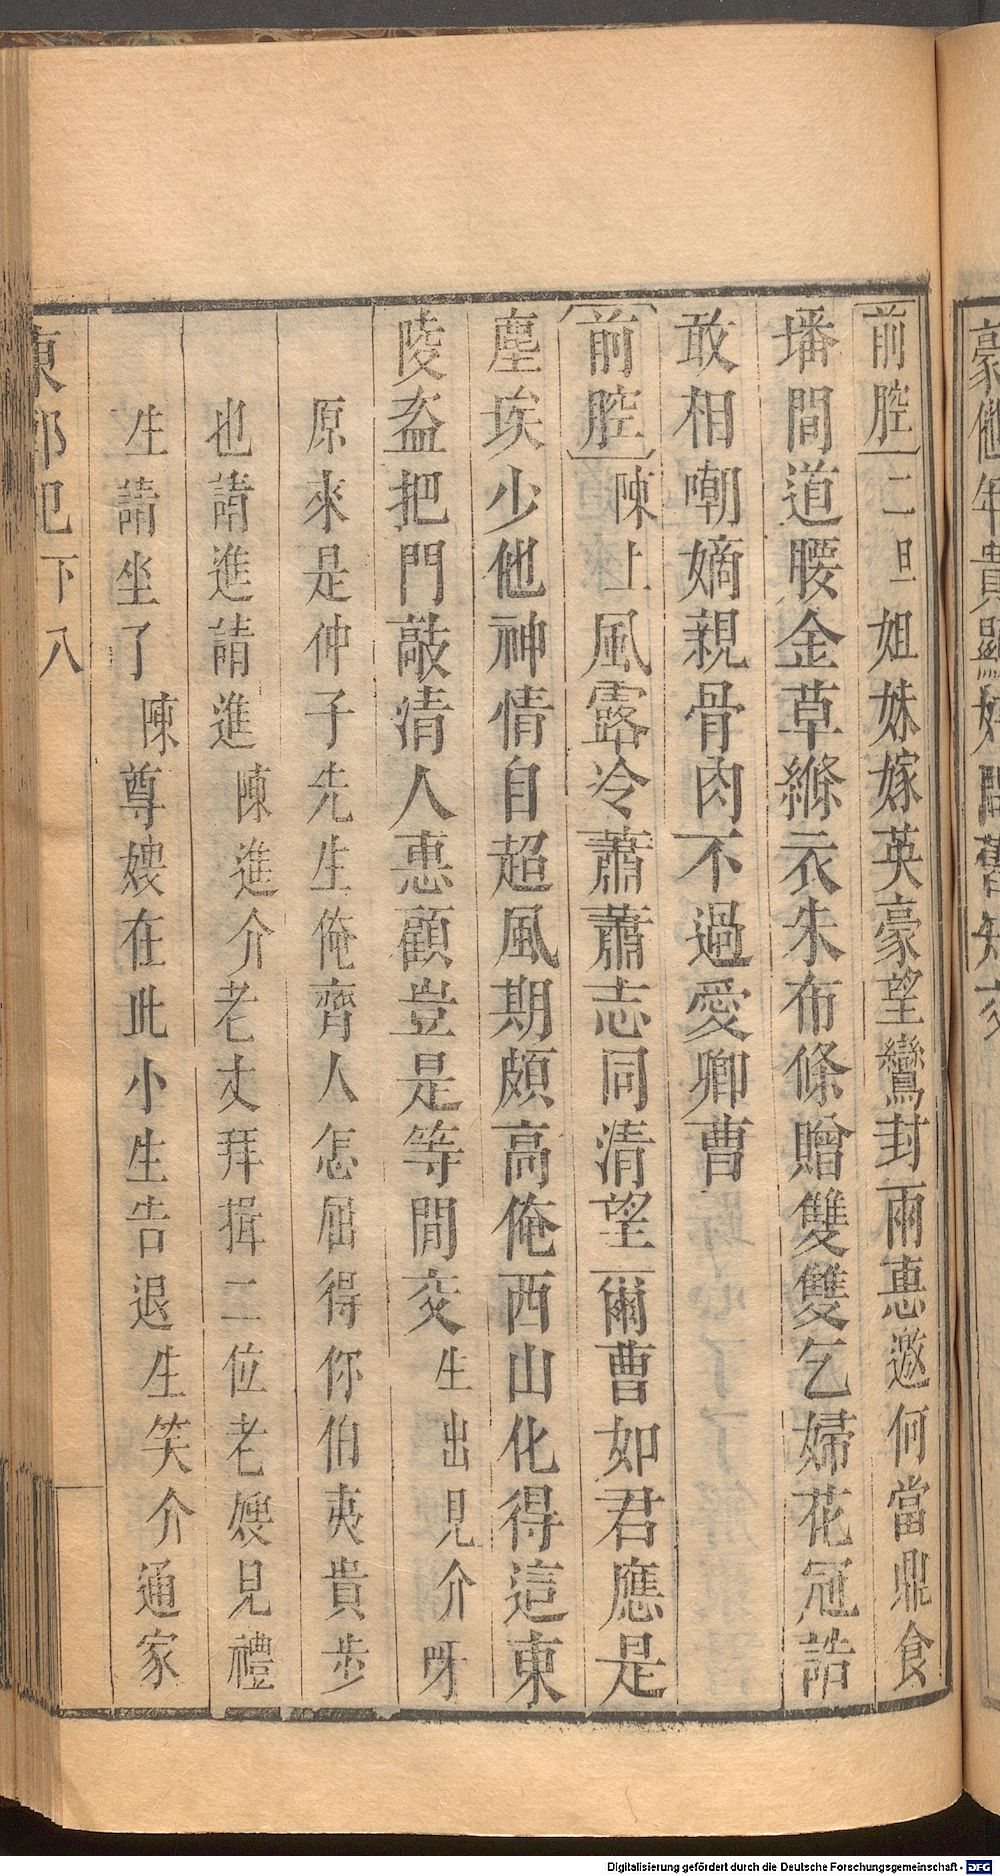 前腔二旦姐妹嫁英豪望鸞封兩惠邀何當鼎食
墦間道腰金草縧衣朱布條贈雙雙乞婦花冠誥
敢相嘲嫡親骨肉不過愛卿曹
前腔陳上風露冷蕭蕭志同清望一爾曹如君應是
塵埃少他神情自超風期頗高俺西山化得這東
陵盗把門敲清人惠顧豈是等間交生出見介呀
原來是仲子先生俺齊人怎屈得你伯夷貴步
也請進請進陳進介老丈拜揖二位老嫂見禮
生請坐了陳尊嫂在此小生告退生笑介通家
東郭記下八
Digitalisierung gefördert durch die Deutsche Forschungsgemeinschaft - DFG